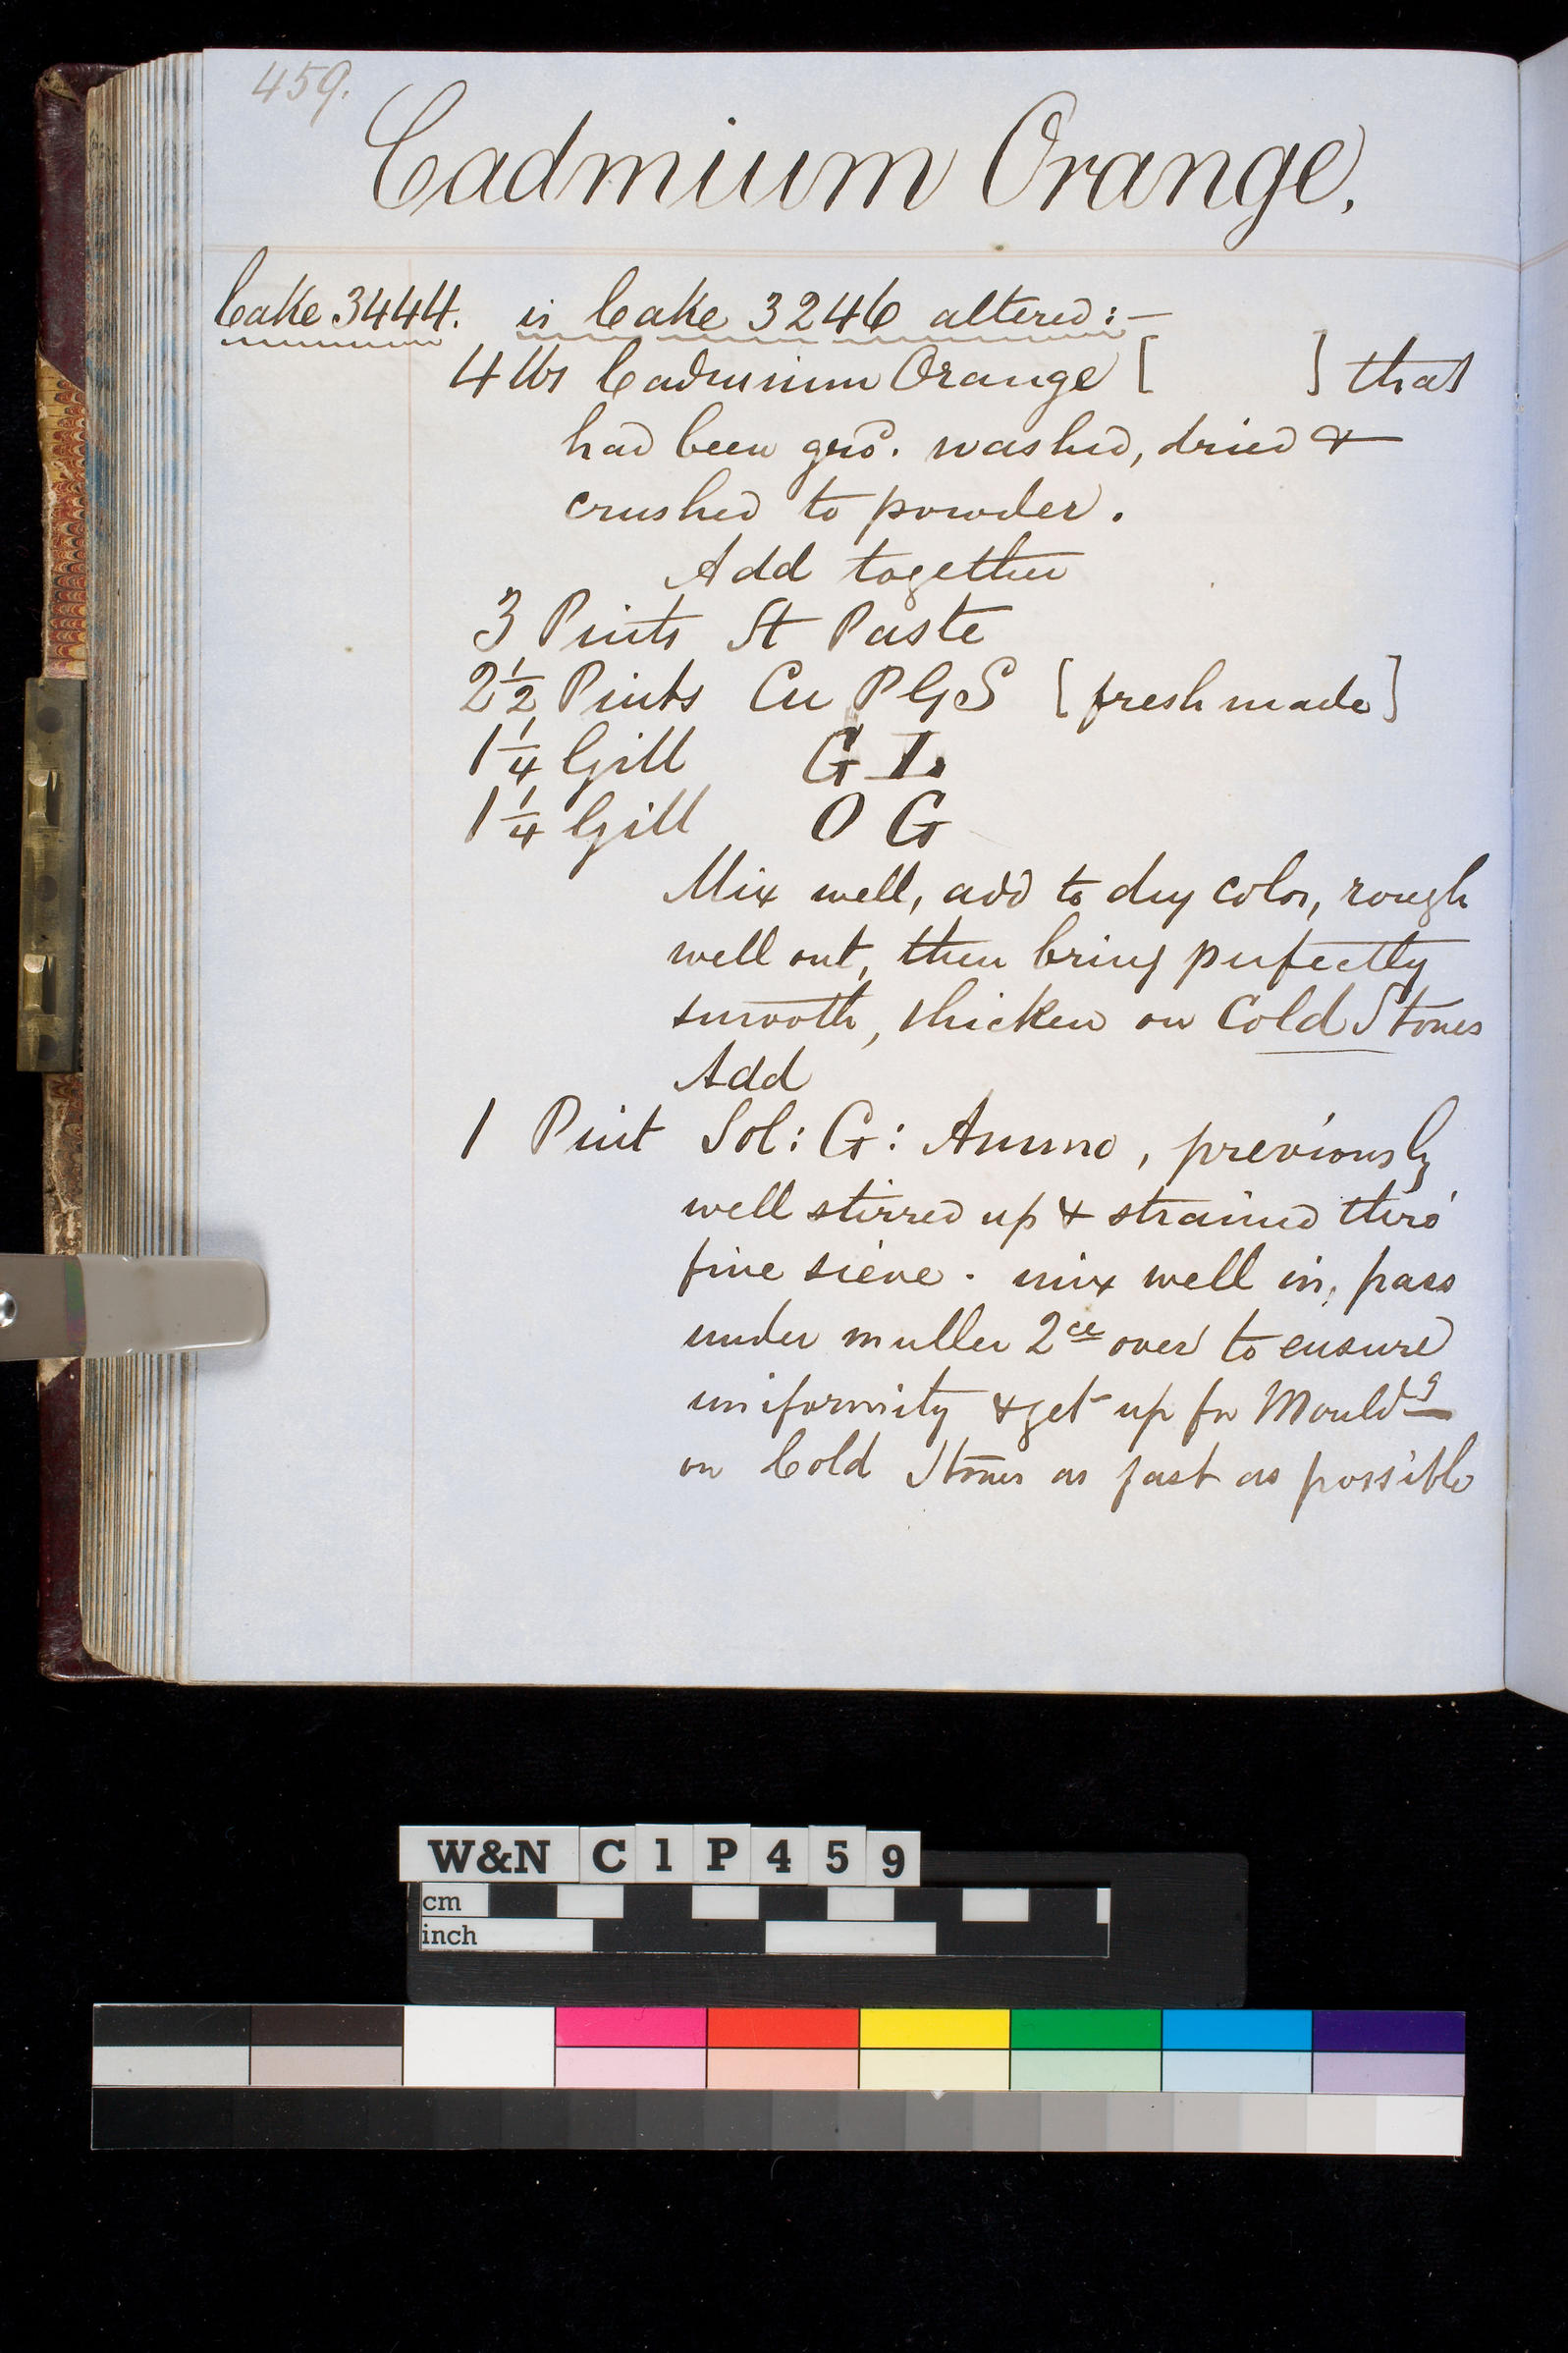 459.
Cadmium Orange.
Cake 3444. is Cake 3246 altered:-
4 lbs Cadmium Orange [ ] that
had been gro^d. washed, dried &
crushed to powder.
Add together
3 Pints St Paste
2½ Pints Cu P G S [fresh made]
1¼ Gill G I.
1¼ Gill O G
Mix well, add to dry color, rough
well out, then bring perfectly
smooth, thicken on Cold Stones
Add
1 Pint Sol: G: Ammo, previously
well stirred up & strained thro'
fine sieve. mix well in, pass
under muller 2ce over to ensure
uniformity & get up for Mouldg
on Cold Stones as fast as possible
W&N C 1 P 4 5 9
cm
inch